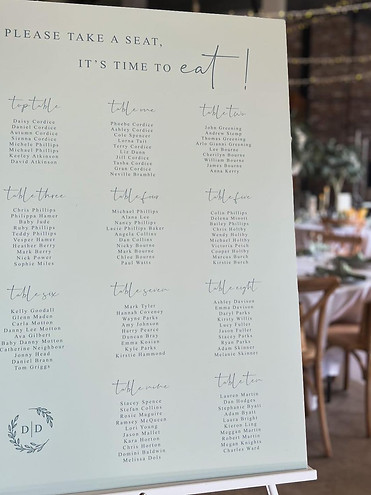 PLEASE TAKE A SEAT,
IT'S TIME TO eat!
top table
Daisy Cordice
Daniel Cordice
Autumn Cordice
Sienna Cordice
Michele Phillips
Michael Phillips
Keeley Atkinson
David Atkinson
table one
Phoebe Cordice
Ashley Cordice
Cole Spencer
Lorna Tait
Terry Cordice
Liz Dunn
Jill Cordice
Sasha Cordice
Gran Cordice
Neville Bramble
table two
John Greening
Andrew Stemp
Thomas Greening
Arlo Gianni Greening
Lee Bourne
Cherilyn Bourne
William Bourne
James Bourne
Anna Kerry
table three
Chris Phillips
Philippa Hamer
Baby Jude
Ruby Phillips
Teddy Phillips
Vesper Hamer
Heather Berry
Mark Berry
Nick Power
Sophie Miles
table four
Michael Phillips
Alana Lee
Nancy Phillips
Lucie Phillips Baker
Angela Collins
Dan Collins
Nicky Bourne
Mark Bourne
Chloe Bourne
Paul Watts
table five
Colin Phillips
Delena Missen
Bailey Phillips
Chris Haltby
Wendy Haltby
Michael Haltby
Victoria Patch
Cooper Haltby
Marcus Burch
Kirstie Burch
table six
Kelly Goodall
Glenn Maden
Carla Motton
Danny Lee Motton
Ava Gilbert
Baby Danny Motton
Catherine Neighbour
Jonny Head
Daniel Brunn
Tom Griggs
table seven
Mark Tyler
Hannah Coveney
Wayne Parks
Amy Johnson
Harry Pearce
Duncan Bray
Emma Karian
Kyle Parks
Kirstie Hammond
table eight
Ashley Davison
Emma Davison
Daryl Parks
Kirsty Willis
Lucy Fuller
Jason Fuller
Stacey Parks
Ryan Parks
Adam Skinner
Melanie Skinner
table nine
Stacey Spence
Stefan Collins
Rosie Maguire
Ramsey McQueen
Lori Young
Jason Mallet
Kora Horton
Chris Horton
Domini Baldwin
Melissa Dols
table ten
Lauren Martin
Dan Hodges
Stephanie Hyatt
Adam Hyatt
Laura Bright
Kieron Ling
Meggan Martin
Robert Martin
Megan Knights
Charles Ward
D|D